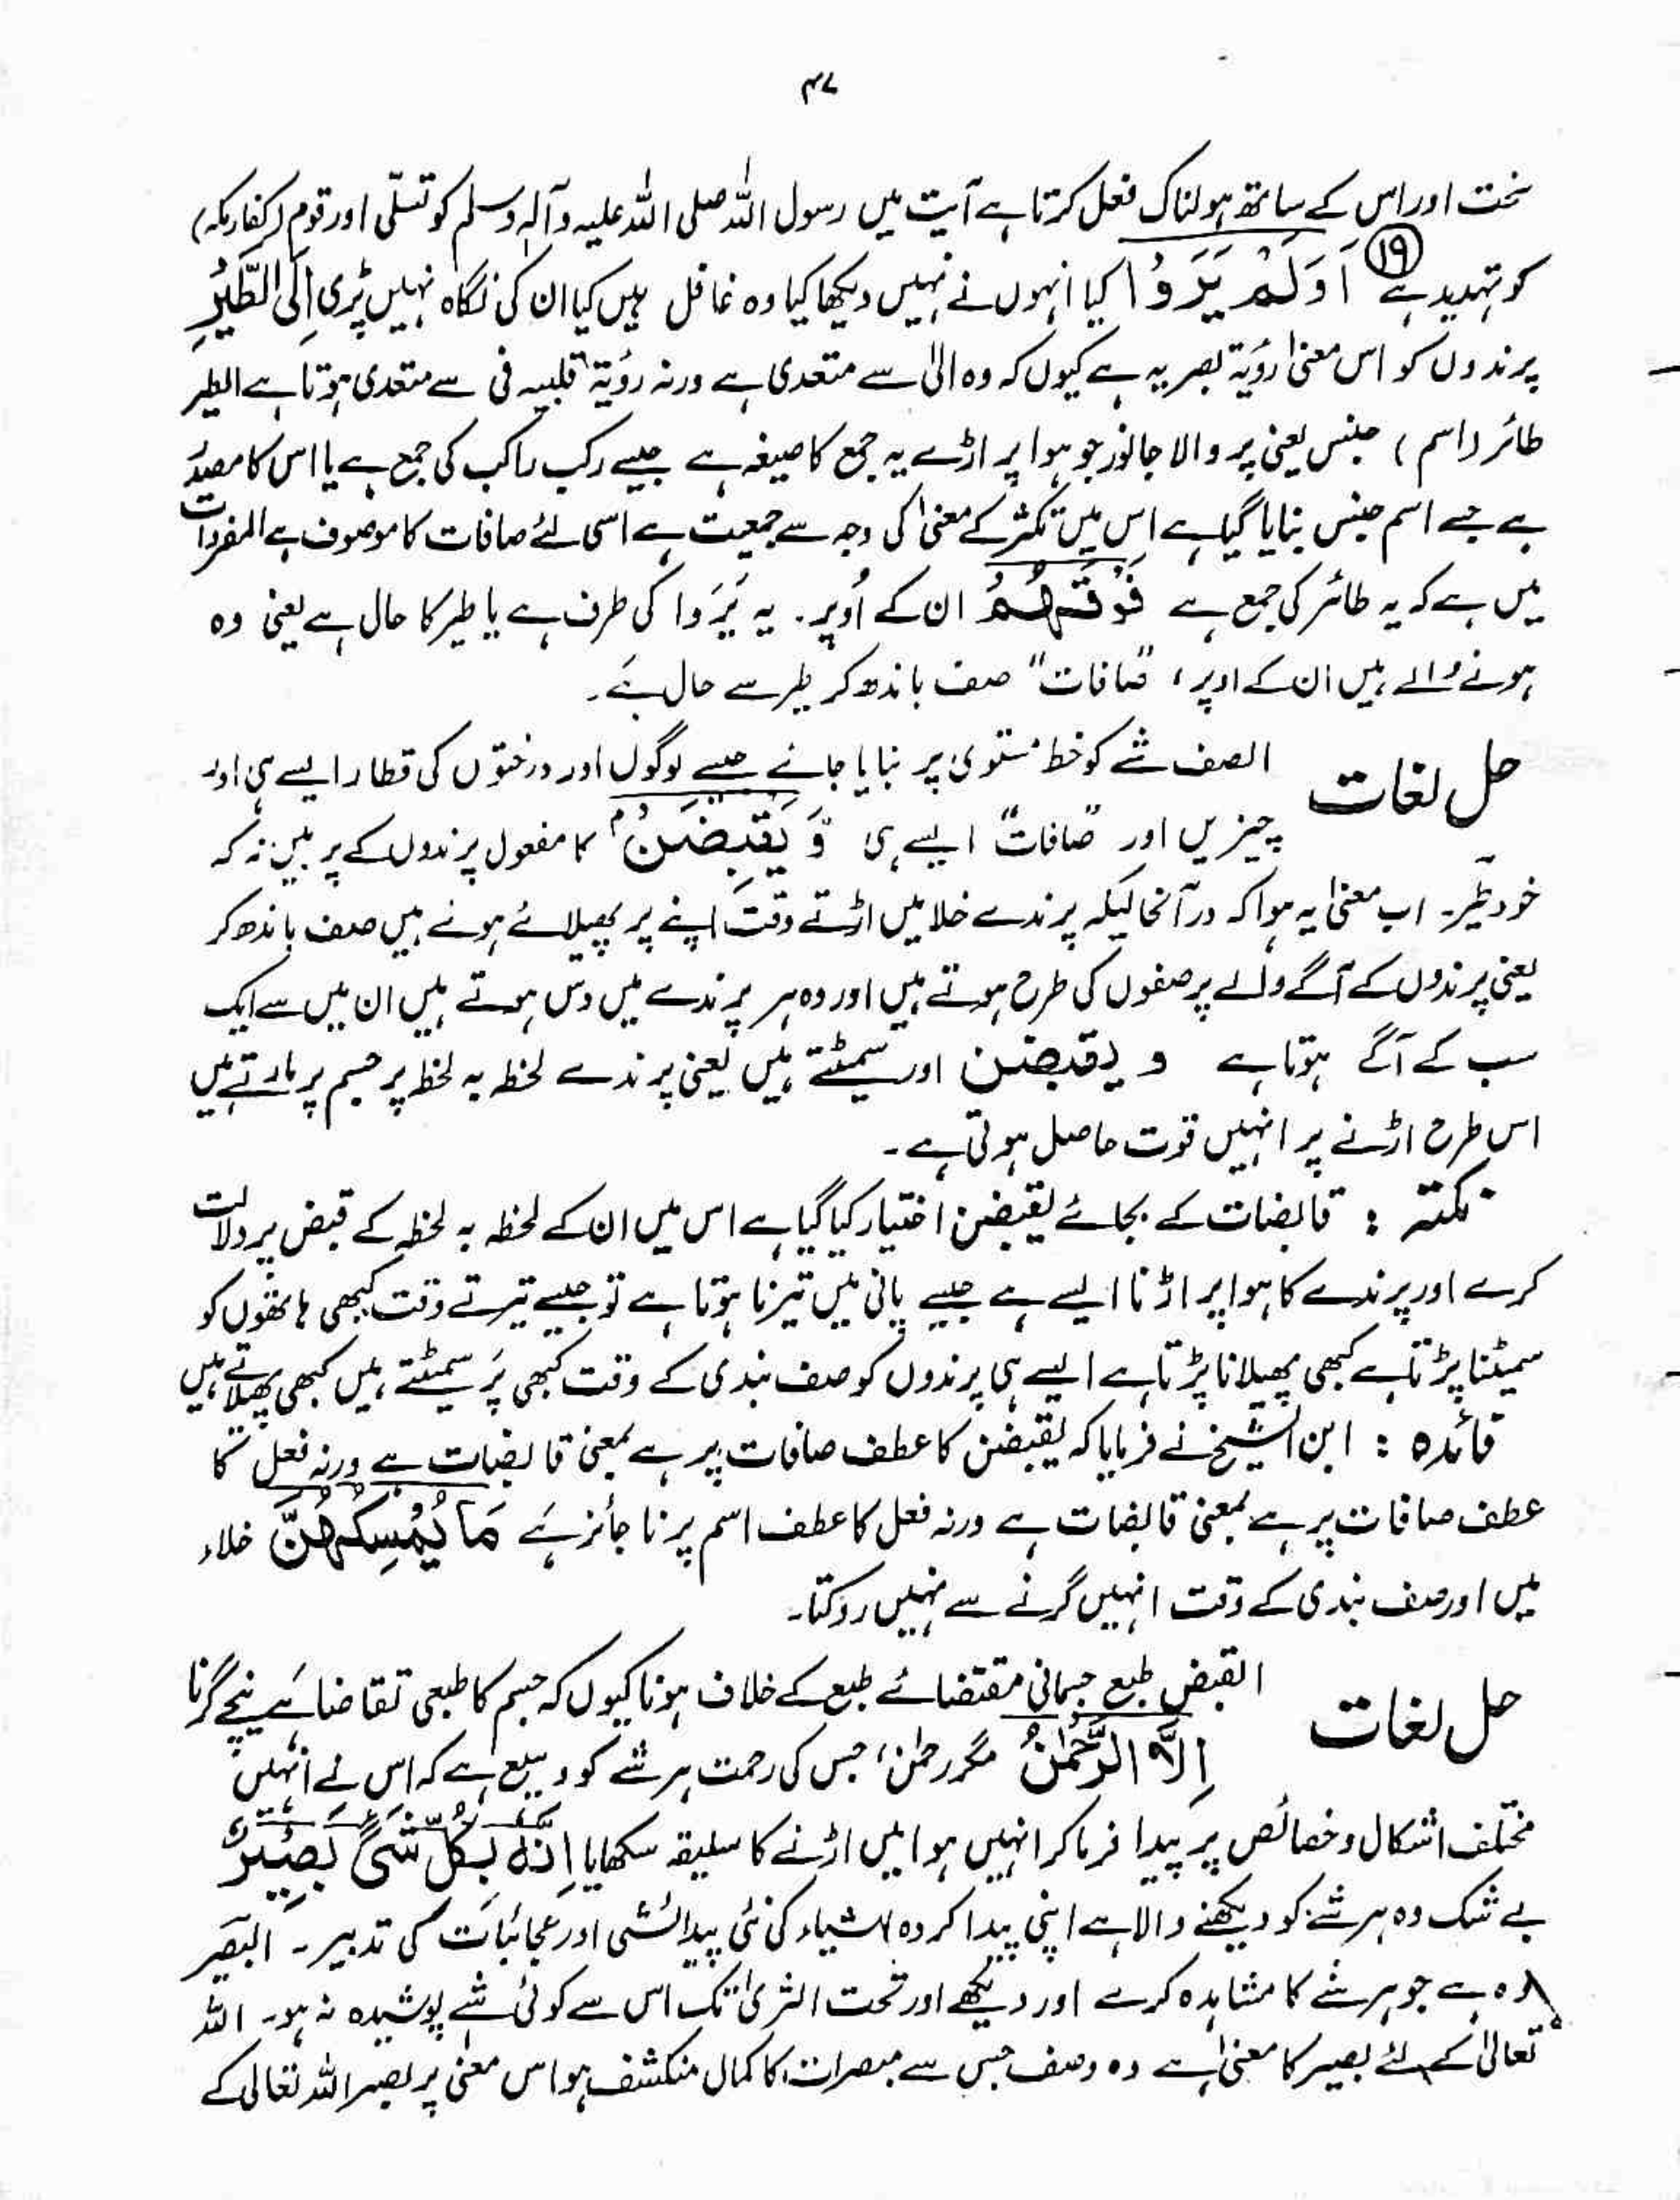 ۴۷
سخت اور اس کے ساتھ ہولناک فعل کرتا ہے آیت میں رسول اللہ صلی اللہ علیہ وآلہ وسلم کو تسلّی اور قوم (کفار مکہ)
کو تہدید ہے ⑲ اَوَلَمْ یَرَوْا کیا انہوں نے نہیں دیکھا کیا وہ غافل ہیں کیا ان کی نگاہ نہیں پڑی اِلَی الطَّیْرِ
پرندوں کو اس معنیٰ رؤیۃ بصریہ ہے کیوں کہ وہ الیٰ سے متعدی ہے ورنہ رؤیۃ قلبیہ فی سے متعدی ہوتا ہے الطیر
طائر (اسم) جنس یعنی پر والا جانور جو ہوا پر اڑے یہ جمع کا صیغہ ہے جیسے رکب راکب کی جمع ہے یا اس کا مصدر
ہے جسے اسم جنس بنایا گیا ہے اس میں تکثر کے معنیٰ کی وجہ سے جمعیت ہے اسی لئے صافات کا موصوف ہے المفردات
میں ہے کہ یہ طائر کی جمع ہے فَوْقَهُمْ ان کے اُوپر۔ یہ یَرَوا کی طرف ہے یا طیر کا حال ہے یعنی وہ
ہونے والے ہیں ان کے اوپر، "صافات" صف باندھ کر طیر سے حال ہے۔
حل لغات الصف شے کو خط مستوی پر بنایا جانے جیسے لوگوں اور درختوں کی قطار ایسے ہی اور
چیزیں اور "صافات" ایسے ہی وَّ یَقْبِضْنَ کا مفعول پرندوں کے پر ہیں نہ کہ
خود طیر۔ اب معنیٰ یہ ہوا کہ درآنحالیکہ پرندے خلا میں اڑتے وقت اپنے پر پھیلائے ہونے ہیں صف باندھ کر
یعنی پرندوں کے آگے والے پر صفوں کی طرح ہوتے ہیں اور وہ ہر پرندے میں دس ہوتے ہیں ان میں سے ایک
سب کے آگے ہوتا ہے و یقبضن اور سمیٹتے ہیں یعنی پرندے لحظہ بہ لحظہ پر جسم پر مارتے ہیں
اس طرح اڑنے پر انہیں قوت حاصل ہوتی ہے۔
نکتہ : قابضات کے بجائے یقبضن اختیار کیا گیا ہے اس میں ان کے لحظہ بہ لحظہ کے قبض پر دلالت
کرے اور پرندے کا ہوا پر اڑنا ایسے ہے جیسے پانی میں تیرنا ہوتا ہے تو جیسے تیرتے وقت کبھی ہاتھوں کو
سمیٹنا پڑتا ہے کبھی پھیلانا پڑتا ہے ایسے ہی پرندوں کو صف بندی کے وقت کبھی پَر سمیٹتے ہیں کبھی پھیلاتے ہیں
فائدہ : ابن الشیخ نے فرمایا کہ یقبضن کا عطف صافات پر ہے بمعنی قابضات ہے ورنہ فعل کا
عطف صافات پر ہے بمعنی قابضات ہے ورنہ فعل کا عطف اسم پر نا جائز ہے مَا یُمْسِکُهُنَّ خلاء
میں اور صف بندی کے وقت انہیں گرنے سے نہیں روکتا۔
حل لغات القبض طبع جسمانی مقتضائے طبع کے خلاف ہونا کیوں کہ جسم کا طبعی تقاضا ہے نیچے گرنا
اِلَّا الرَّحْمٰنُ مگر رحمٰن، جس کی رحمت ہر شے کو وسیع ہے کہ اس نے انہیں
مختلف اشکال و خصائص پر پیدا فرما کر انہیں ہوا میں اڑنے کا سلیقہ سکھایا اِنَّهٗ بِکُلِّ شَیْءٍ بَصِیْرٌ
بے شک وہ ہر شے کو دیکھنے والا ہے اپنی پیدا کردہ اشیاء کی نئی پیدائشی اور عجائبات کی تدبیر۔ البصیر
وہ ہے جو ہر شے کا مشاہدہ کرے اور دیکھے اور تحت الثریٰ تک اس سے کوئی شے پوشیدہ نہ ہو۔ اللہ
تعالیٰ کے لئے بصیر کا معنیٰ ہے وہ وصف جس سے مبصرات کا کمال منکشف ہو اس معنیٰ پر بصیر اللہ تعالیٰ کے